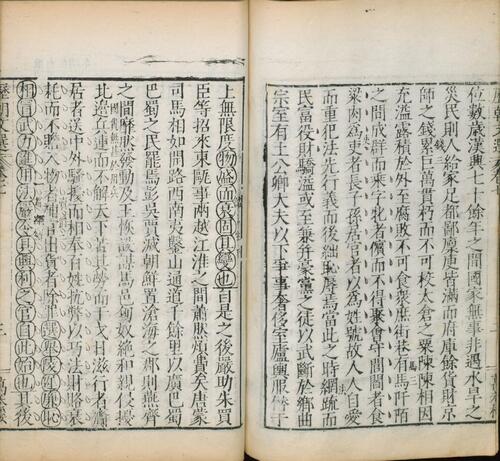 位數歲漢興七十餘年之間國家無事非遇水旱之
災民則人給家足都鄙廩庾皆滿而府庫餘貨財京
師之錢累巨萬貫朽而不可校太倉之粟陳陳相因
充溢露積於外至腐敗不可食衆庶街巷有馬阡陌
之間成群而乘字牝者儐而不得聚會守閭閻者食
粱肉為吏者長子孫居官者以為姓號故人人自愛
而重犯法先行義而後絀恥辱焉當此之時網疏而
民富役財驕溢或至兼并豪黨之徒以武斷於鄉曲
宗室有土公卿大夫以下爭事奢侈室廬輿服僭于
上無限度物盛而衰固其變也自是之後嚴助朱買
臣等招來東甌事兩越江淮之間蕭然煩費矣唐蒙
司馬相如開路西南夷鑿山通道千餘里以廣巴蜀
巴蜀之民罷焉彭吳賈滅朝鮮置滄海之郡則燕齊
之間靡然發動及王恢設謀馬邑匈奴絶和親侵擾
北邊兵連而不解天下苦其勞而干戈日滋行者齎
居者送中外騷擾而相奉百姓抏弊以巧法財賂衰
耗而不贍入物者補官出貨者除罪選舉陵遲廉恥
相冒武力進用法嚴令具興利之臣自此始也其後
三